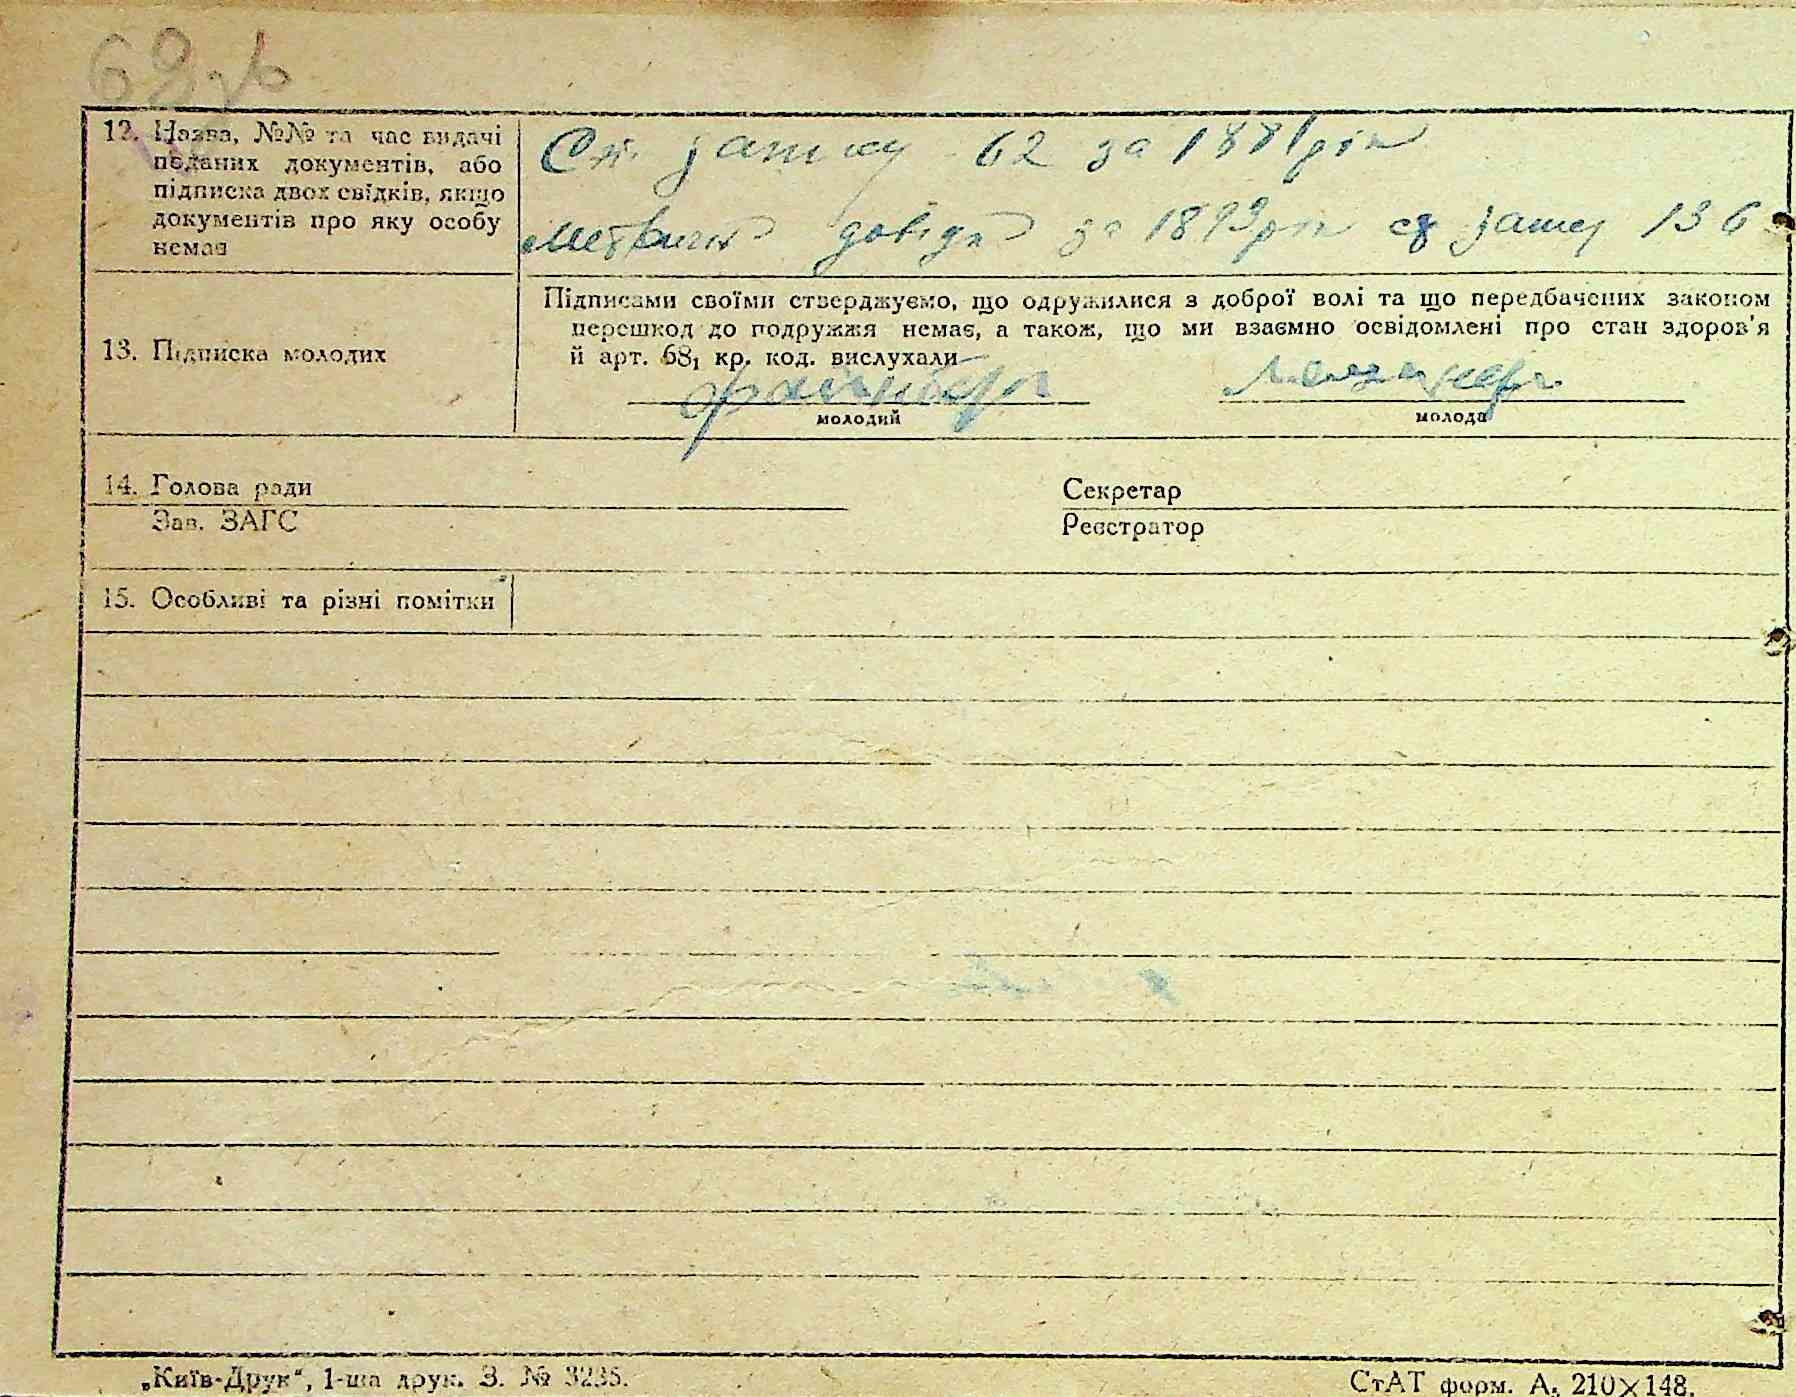 68
12. Назва, №№ та час видачі
поданих документів, або
підписка двох свідків, якщо
документів про яку особу
немає
Ст. запису 62 за 1881 рік
за 1893 рік ст запису 136
13. Підписка молодих
Підписами своїми стверджуємо, що одружилися з доброї волі та що передбачених законом
перешкод до подружжя немає, а також, що ми взаємно освідомлені про стан здоров'я
й арт. 68₁ кр. код. вислухали
Файнберг
молодий
молода
14. Голова ради
Секретар
Зав. ЗАГС
Реєстратор
15. Особливі та різні помітки
„Київ-Друк“, 1-ша друк. З. № 3235.
СтАТ форм. А5 210×148.